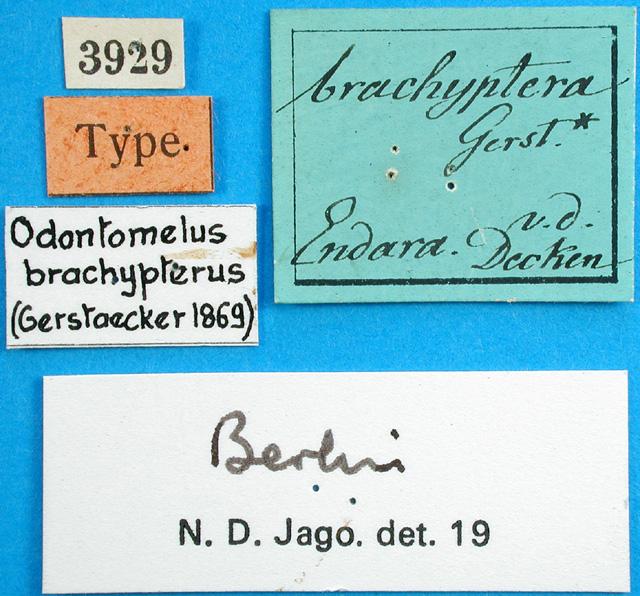 3929
Type.
Odontomelus
brachypterus
(Gerstaecker 1869)
brachyptera
Gerst.*
Endara. v. d.
Decken
Berlin
N. D. Jago. det. 19